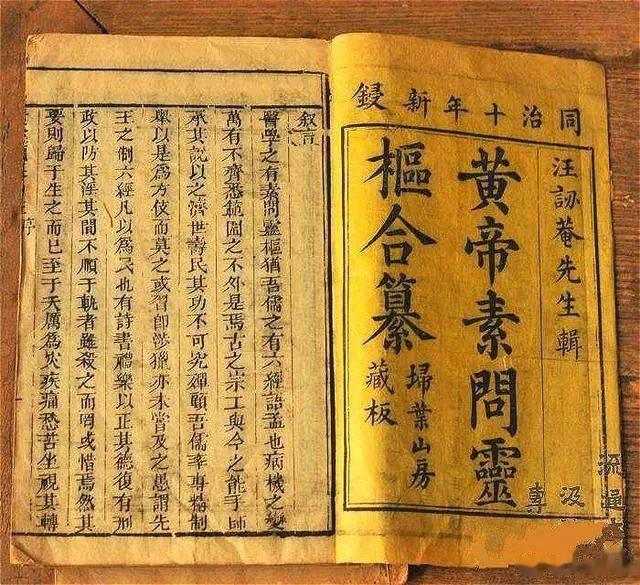 同治十年新鋟
汪訒菴先生輯
黄帝素問靈
樞合纂
埽葉山房
藏板
叙言
醫學之有素問靈樞猶吾儒之有六經語孟也病機之變
萬有不齊悉範圍之不外是焉古之宗工與今之能手師
承其說以之濟世壽民其功不可究殫顧吾儒率專精制
舉以是爲方伎而莫之或習即涉獵亦未嘗及之愚謂先
王之制六經凡以爲民也有詩書禮樂以正其德復有刑
政以防其淫其間不順于軌者雖殺之而罔或惜焉然其
要則歸于生之而已至于夭厲爲灾疾痛愁苦坐視其轉